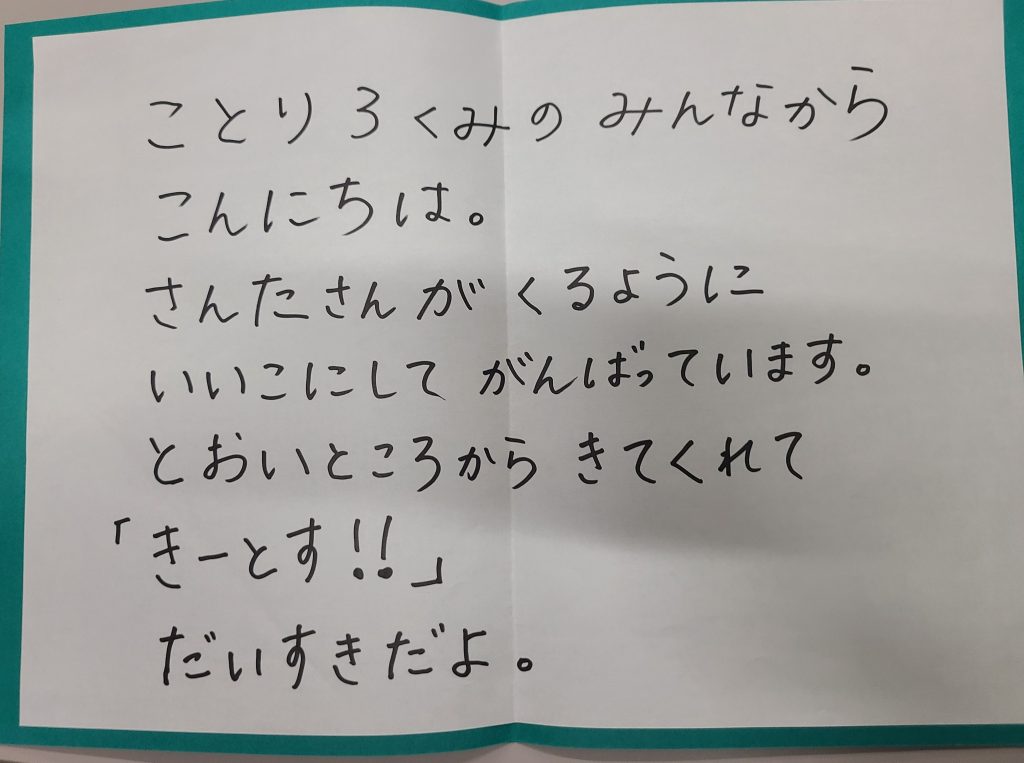 ことり3くみの みんなから
こんにちは。
さんたさんが くるように
いいこにして がんばっています。
とおいところから きてくれて
「きーとす!!」
だいすきだよ。